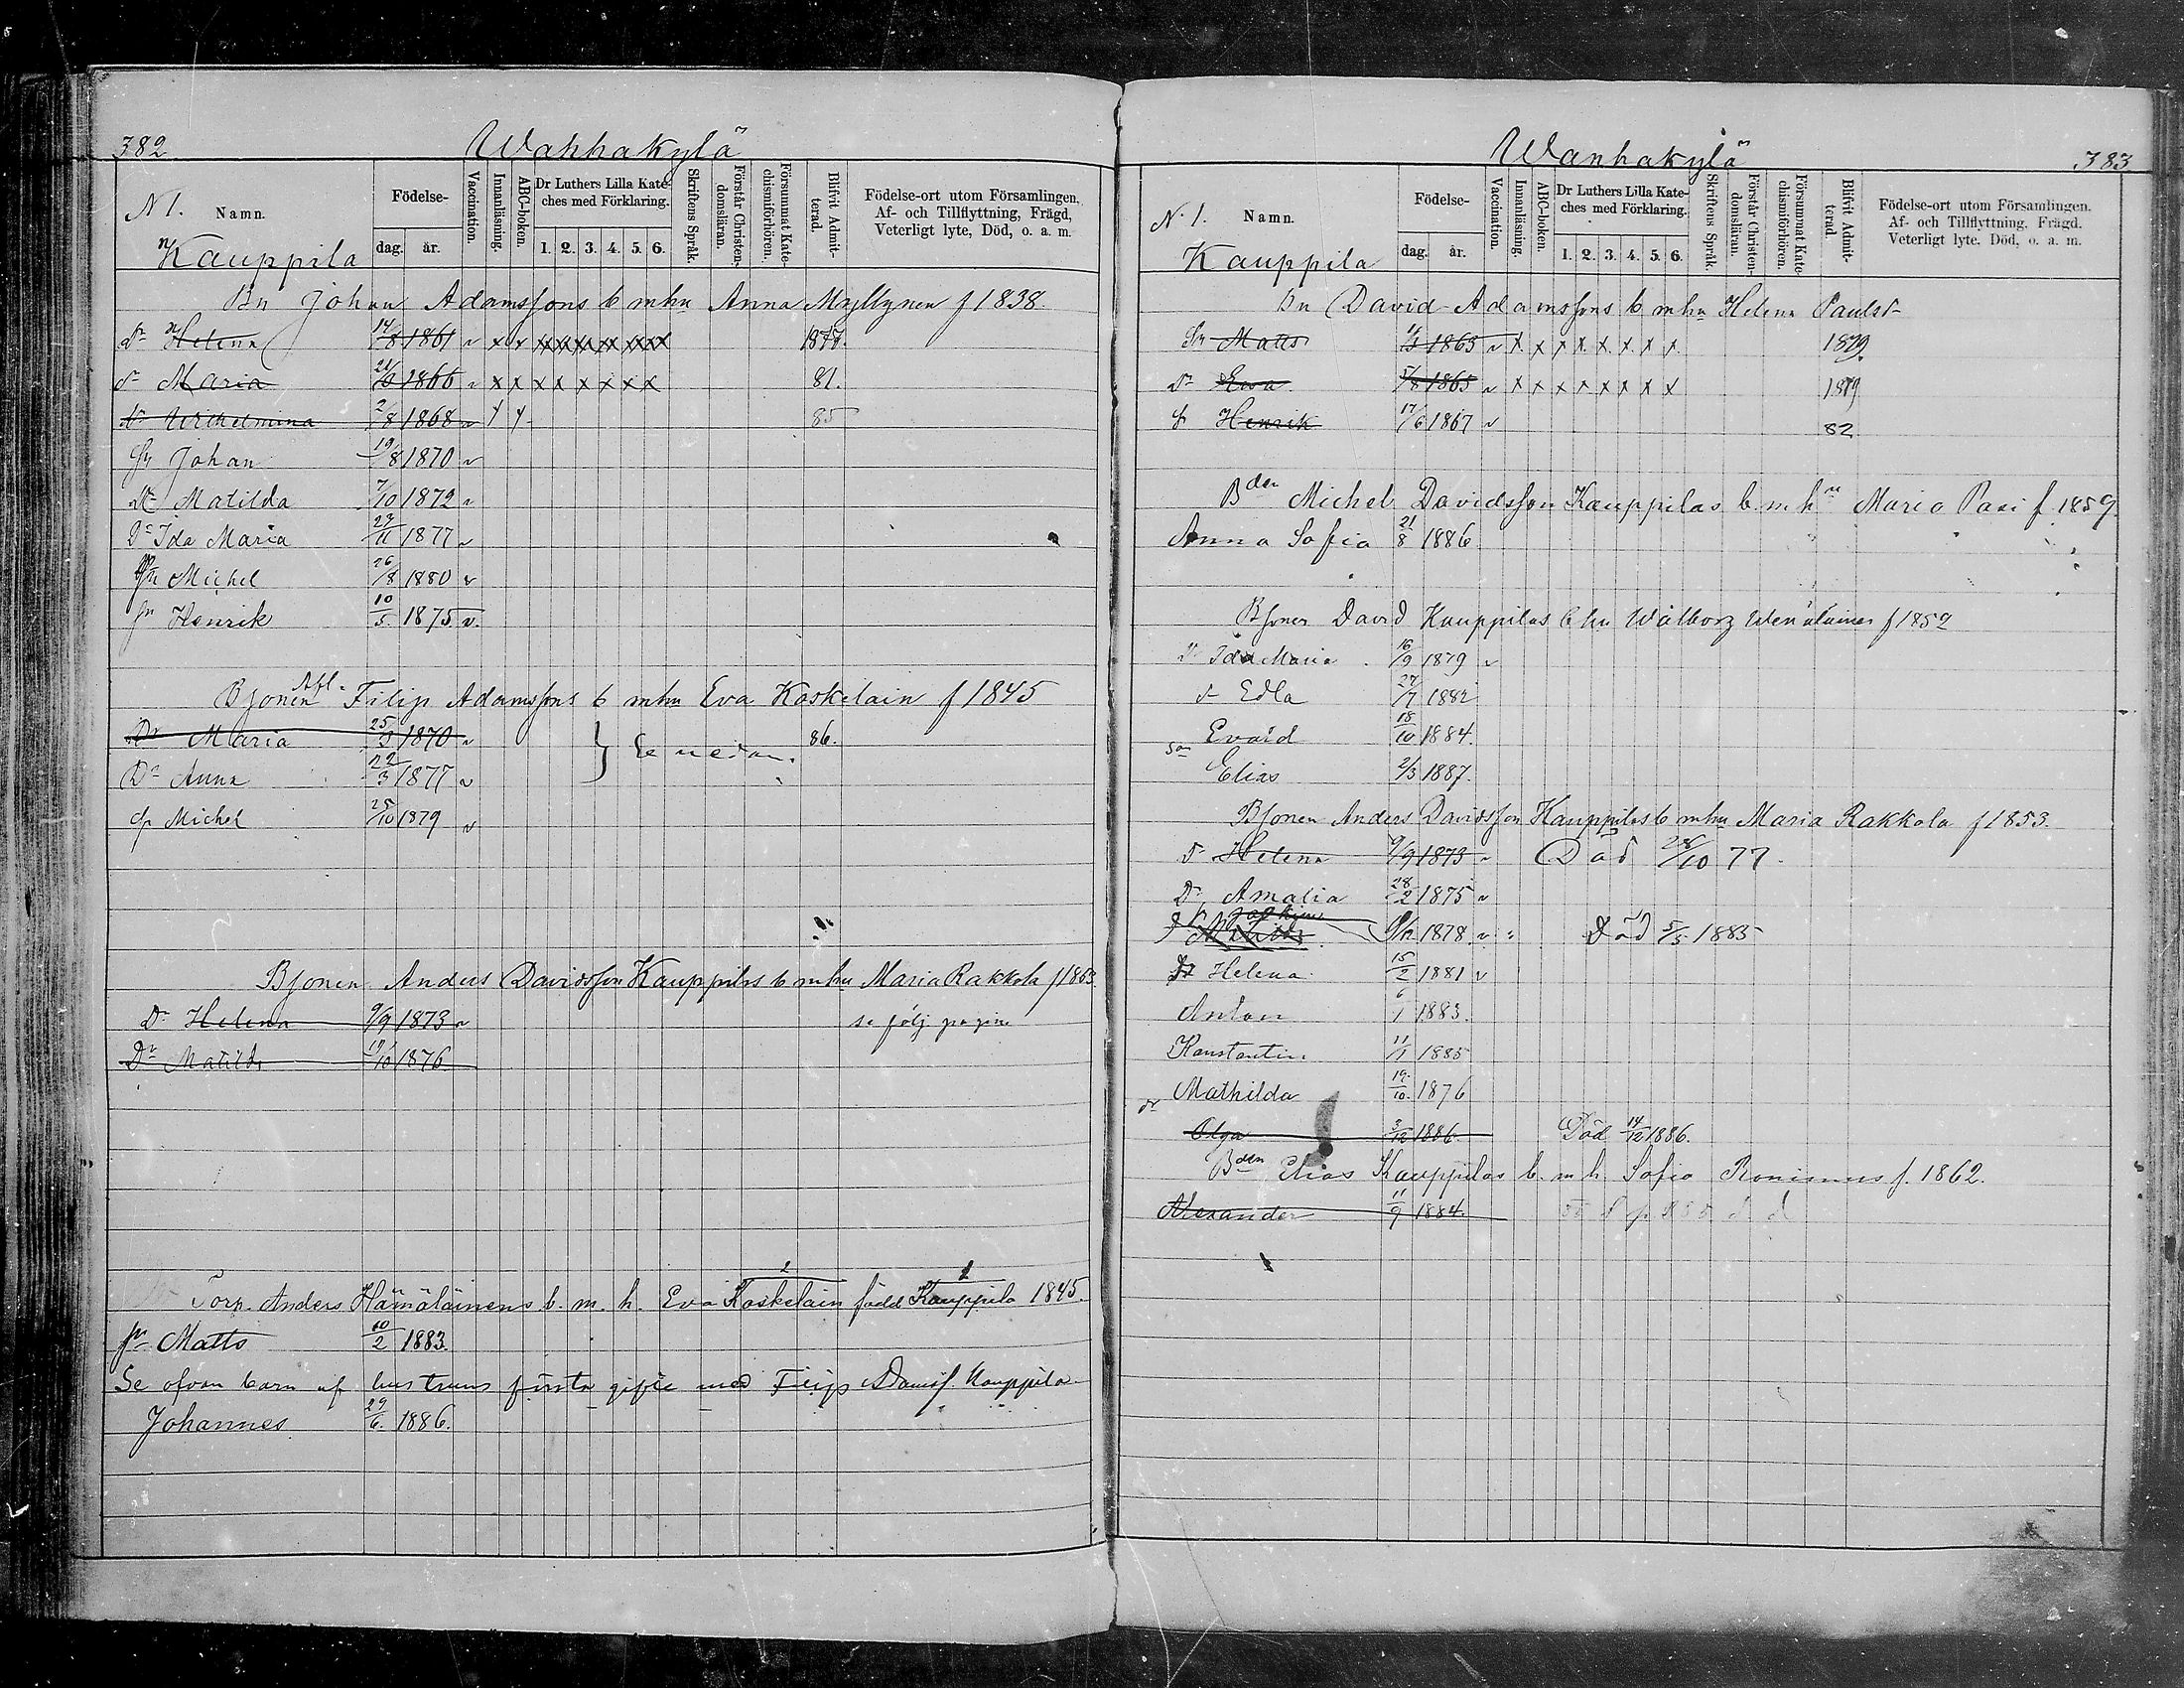 382
Wanhakylä
N 1. Namn.
Födelse-
dag. år.
Vaccination.
Innanläsning.
ABC-boken.
Dr Luthers Lilla Kateches med Förklaring.
1. 2. 3. 4. 5. 6.
Skriftens Språk.
Förstår Christendomsläran.
Försummat Katechismiförhören.
Blifvit Admitterad.
Födelse-ort utom Församlingen, Af- och Tillflyttning, Frägd, Veterligt lyte, Död, o. a. m.
Kauppila
Bn Johan Adamssons b mhu Anna Myllynen f 1838.
Dr Helena 14/8 1861 v x x x x x x x x 1877.
dr Maria 21/6 1866 v x x x x x x x x 81.
dr Wilhelmina 2/8 1868 v x x 85
Sn Johan 19/8 1870 v
Dr Matilda 7/10 1872 v
Dr Ida Maria 29/11 1877 v
Sn Michel 26/8 1880 v
Sn Henrik 10/5 1875 v.
Bsonen Afl. Filip Adamssons b mhu Eva Koskelain f 1845
Dr Maria 25/3 1870 v 86.
Se nedan.
Dr Anna 22/3 1877 v
Sn Michel 25/10 1879 v
Bsonen Anders Davidsson Kauppilas b mhu Maria Rakkola f 1853
Dr Helena 9/9 1873 v se följ pagina
Dr Matilda 19/10 1876
Torp. Anders Hämäläinens b. m. h. Eva Koskelain född Kauppila 1845.
Sn Matts 10/2 1883.
Se ofvan barn af hustruns första gifte med Filip Adamsf. Kauppila
Johannes 29/6. 1886.
Wanhakylä
383
N. 1. Namn.
Födelse-
dag. år.
Vaccination.
Innanläsning.
ABC-boken.
Dr Luthers Lilla Kateches med Förklaring.
1. 2. 3. 4. 5. 6.
Skriftens Språk.
Förstår Christendomsläran.
Försummat Katechismiförhören.
Blifvit Admitterad.
Födelse-ort utom Församlingen. Af- och Tillflyttning. Frägd. Veterligt lyte. Död, o. a. m.
Kauppila
Bn David Adamssons b mhu Helena Paulsd
Sn Matts 1863 v x x x x x x x x 1879.
Dr Ewa 5/8 1865 v x x x x x x x x 1879
S Henrik 17/6 1867 v 82
Bden Michel Davidsson Kauppilas b. m. hu Maria Pasi f. 1859.
Anna Sofia 21/8 1886
Bsonen David Kauppilas b hu Walborg Wenäläinen f 1859
D Ida Maria 16/9 1879 v
d Edla 27/7 1882
Evald 18/10 1884.
son Elias 2/3 1887.
Bsonen Anders Davidsson Kauppilas b mhu Maria Rakkola f 1853.
D Helena 9/9 1873 v Död 28/10 77.
D Amalia 28/2 1875 v
1878 v Död 5/5 1885
Dr Helena 15/2 1881 v
Anton 6/1 1883.
Konstantin 11/1 1885
dr Mathilda 19/10. 1876
Olga 3/12 1886 Död 14/12 1886.
Bden Elias Kauppilas b. m h Sofia Ronimus f. 1862.
Alexander 11/9 1884.